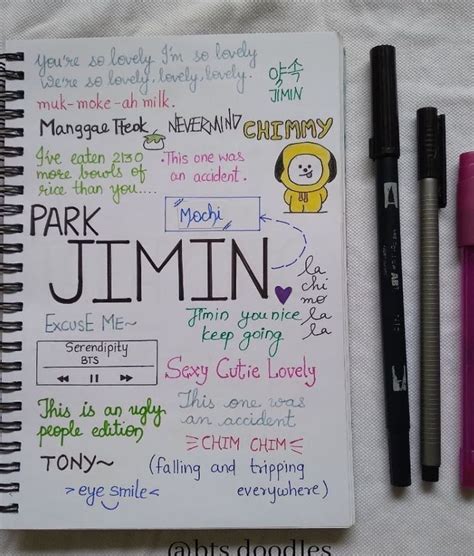 You're so lovely I'm so lovely
We're so lovely, lovely, lovely.
약속
JIMIN
muk-moke-ah milk.
Manggae Tteok
NEVERMIND
CHIMMY
I've eaten 2130
more bowls of
rice than you....
.This one was
an accident.
Mochi
PARK
JIMIN
la
chi
mo
la
la
EXCUSE ME~
Jimin you nice
keep going
Serendipity
BTS
Sexy Cutie Lovely
This is an ugly
people edition
This one was
an accident
CHIM CHIM
TONY~
(falling and tripping
everywhere)
>eye smile<
@bts.doodles